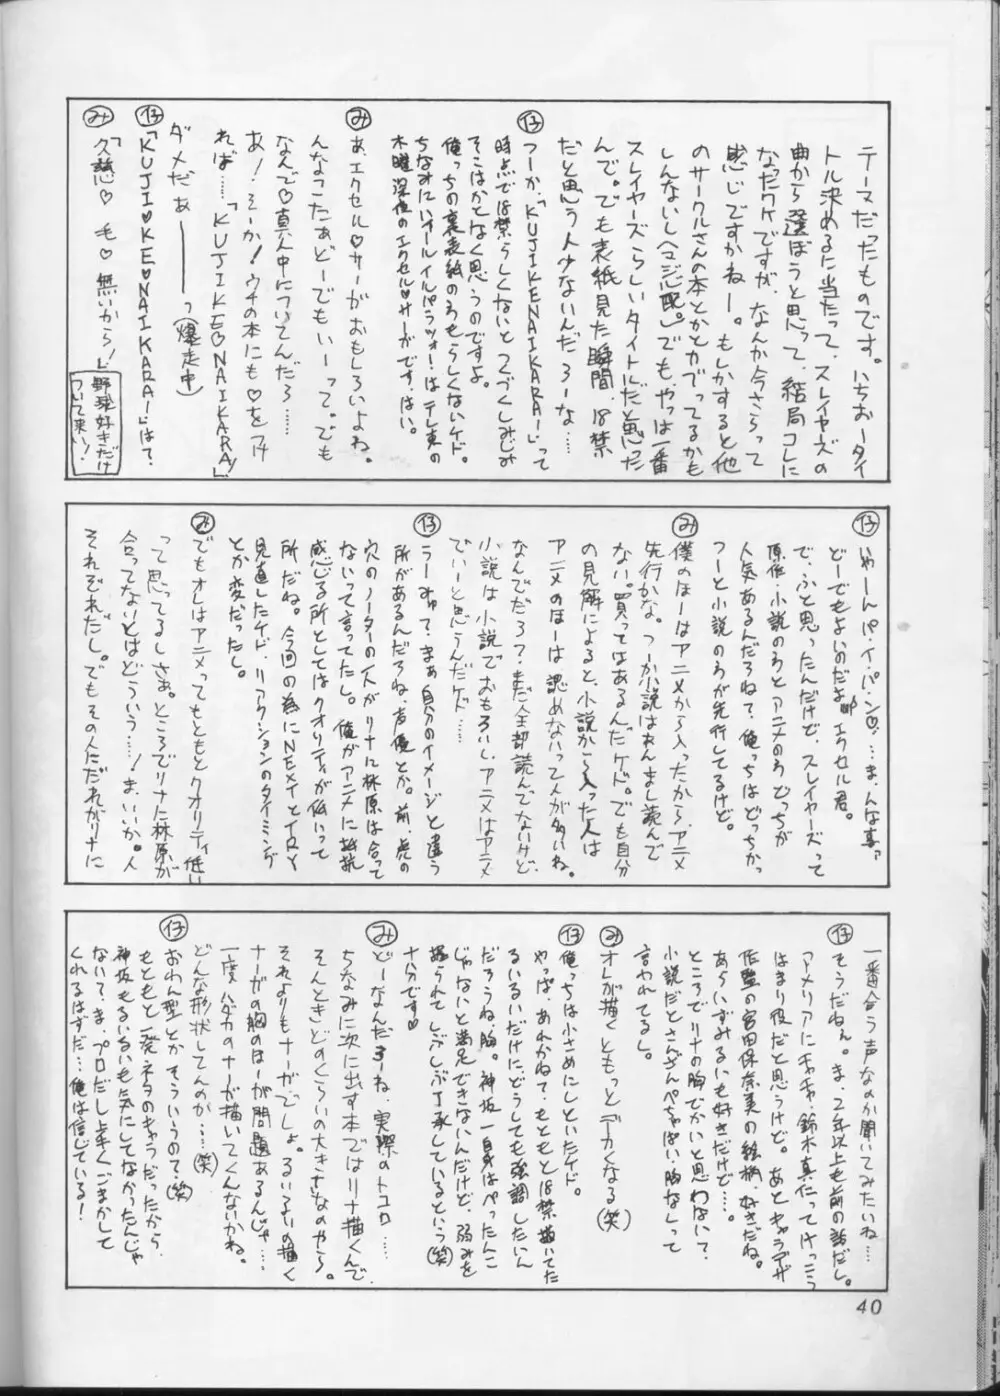 テーマだったものです。いちおータイ
トル決めるに当たって、スレイヤーズの
曲から選ぼうと思って、結局コレに
なったワケですが、なんか今さらって
感じですかねー。もしかすると他
のサークルさんの本とかとカブってるかも
しんないし(マジ心配。)でも、やっぱ一番
スレイヤーズらしいタイトルだと思った
んで。でも表紙見た瞬間、18禁
だと思う人少ないんだろーな……
㋑つーか、「KUJIKENAIKARA!」って
時点で18禁らしくないとつくづくしみじみ
そこはかとなく思うのですよ。
俺っちの裏表紙のほうもらしくないケド。
ちなみに「オールイルパラッツォ!」はテレ東の
木曜深夜のエクセル♡サーガです、はい。
㋯あ、エクセル♡サーガおもしろいよね。
んなこたぁどーでもいーって。でも
なんで♡真ん中についてんだろ……
あ!そーか!ウチの本にも♡をつけ
れば……「KUJIKE♡NAIKARA!」
ダメだぁ―――っ(爆走中)
仔「KUJI♡KE♡NAI♡KARA!」は?
㋯「久慈♡ 毛♡ 無いから!」
野球好きだけ
ついて来い!
仔いやーん、パ・イ・パ・ン♡…ま、んな事ァ
どーでもよいのだよ エクセル君。
で、ふと思ったんだけど、スレイヤーズって
原作・小説のほうとアニメのほうどっちが
人気あるんだろね?俺っちはどっちかっ
つーと小説のほうが先行してるけど。
㋯僕のほーはアニメから入ったから、アニメ
先行かな。つーか小説はあんまし読んで
ない。買ってはあるんだケド。でも自分
の見解によると、小説から入った人は
アニメのほーは、認めないって人が多いね。
なんでだろ?まだ全部読んでないけど、
小説は小説でおもろいし、アニメはアニメ
でいーと思うんだケド……
仔うーみゅ?まぁ自分のイメージと違う
所があるんだろね、声優とか。前、虎の
穴のノーターの人が「リナに林原は合って
ない」って言ってたし。俺がアニメに抵抗
感じる所としてはクオリティが低いって
所だね。今回の為にNEXTとTRY
見直したケド、リアクションのタイミング
とか変だったし。
㋯でもオレはアニメってもともとクオリティ低い
って思ってるしさぁ。ところでリナに林原が
合ってないとはどういう……!まいいか。人
それぞれだし。でもその人だれがリナに
一番合う声なのか聞いてみたいね……
仔そうだねぇ。ま、2年以上も前の話だし。
アメリアにチャチャ、鈴木真仁ってけっこう
はまり役だと思うけど。あとキャラデザ
作監の宮田保奈美の絵柄、好きだね。
あらいずみるいも好きだけど…。
ところでリナの胸でかいと思わない?
小説だとさんざんぺちゃぱい、胸なしって
言われてるし。
㋯オレが描くともっとデカくなる(笑)
仔俺っちは小さめにしといたケド。
やっぱ、あれかね?もともと18禁描いてた
るいるいだけに、どうしても強調したいん
だろうね、胸。神坂一自身はぺったんこ
じゃないと満足できないんだけど、弱みを
握られてしぶしぶ了承しているという(笑)
十八分です♡
㋯どーなんだろーね、実際のトコロ……
ちなみに次に出す本ではリナ描くんで、
そんときどのくらいの大きさなのやら。
それよりもナーガでしょ。るいるいの描く
ナーガの胸のほーが問題あるんじゃ……
一度、ハダカのナーガ描いてくんないかね。
どんな形状してんのか……(笑)
仔おわん型とかそういうので?(笑)
もともと一発ネタのキャラだったから、
神坂もるいるいも気にしてなかったんじゃ
ない?ま、プロだし上手くごまかして
くれるはずだ…俺は信じている!
40